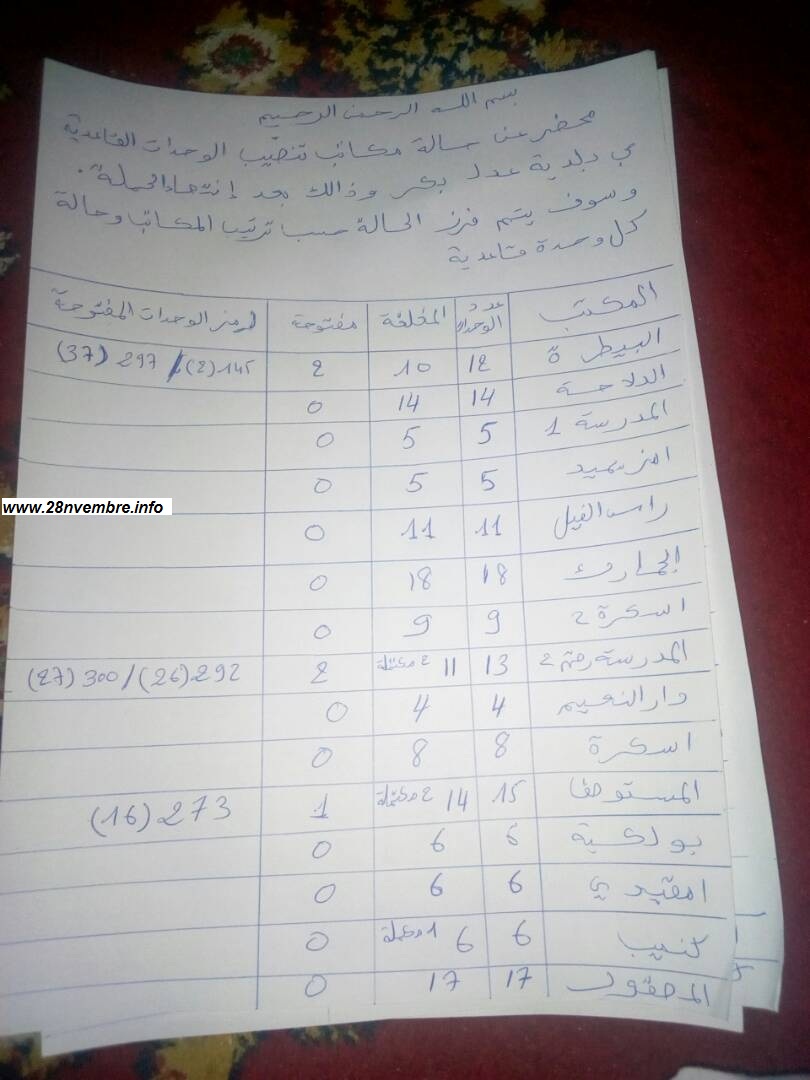 بسم الله الرحمن الرحيم
محضر عن حالة مكاتب تنصيب الوحدات القاعدية
في بلدية عدل بكر وذالك بعد إنتهاء الحملة.
وسوف يتم فرز الحالة حسب ترتيب المكاتب وحالة
كل وحدة قاعدية
المكتب عدد الوحدات المغلقة مفتوحة رمز الوحدات المفتوحة
البيطرة 12 10 2 145(2) / 297 (37)
الدلاحة 14 14 0
المدرسة 1 5 5 0
5 5 0
راس الفيل 11 11 0
الجمارك 18 18 0
اسكرة 2 9 9 0
المدرسة رقم 2 13 11 2 292(26) / 300(27)
دار النعيم 4 4 0
اسكرة 8 8 0
15 14 1 273(16)
بولكية 6 6 0
امقيدي 6 6 0
كنيب 6 6 0
17 17 0
www.28nvembre.info